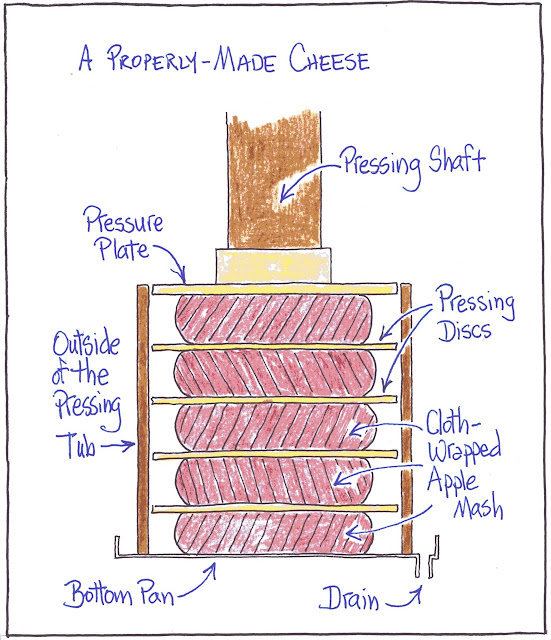 A PROPERLY-MADE CHEESE
Pressing Shaft
Pressure
Plate
Pressing
Discs
Outside
of the
Pressing
Tub
Cloth-
Wrapped
Apple
Mash
Bottom Pan
Drain